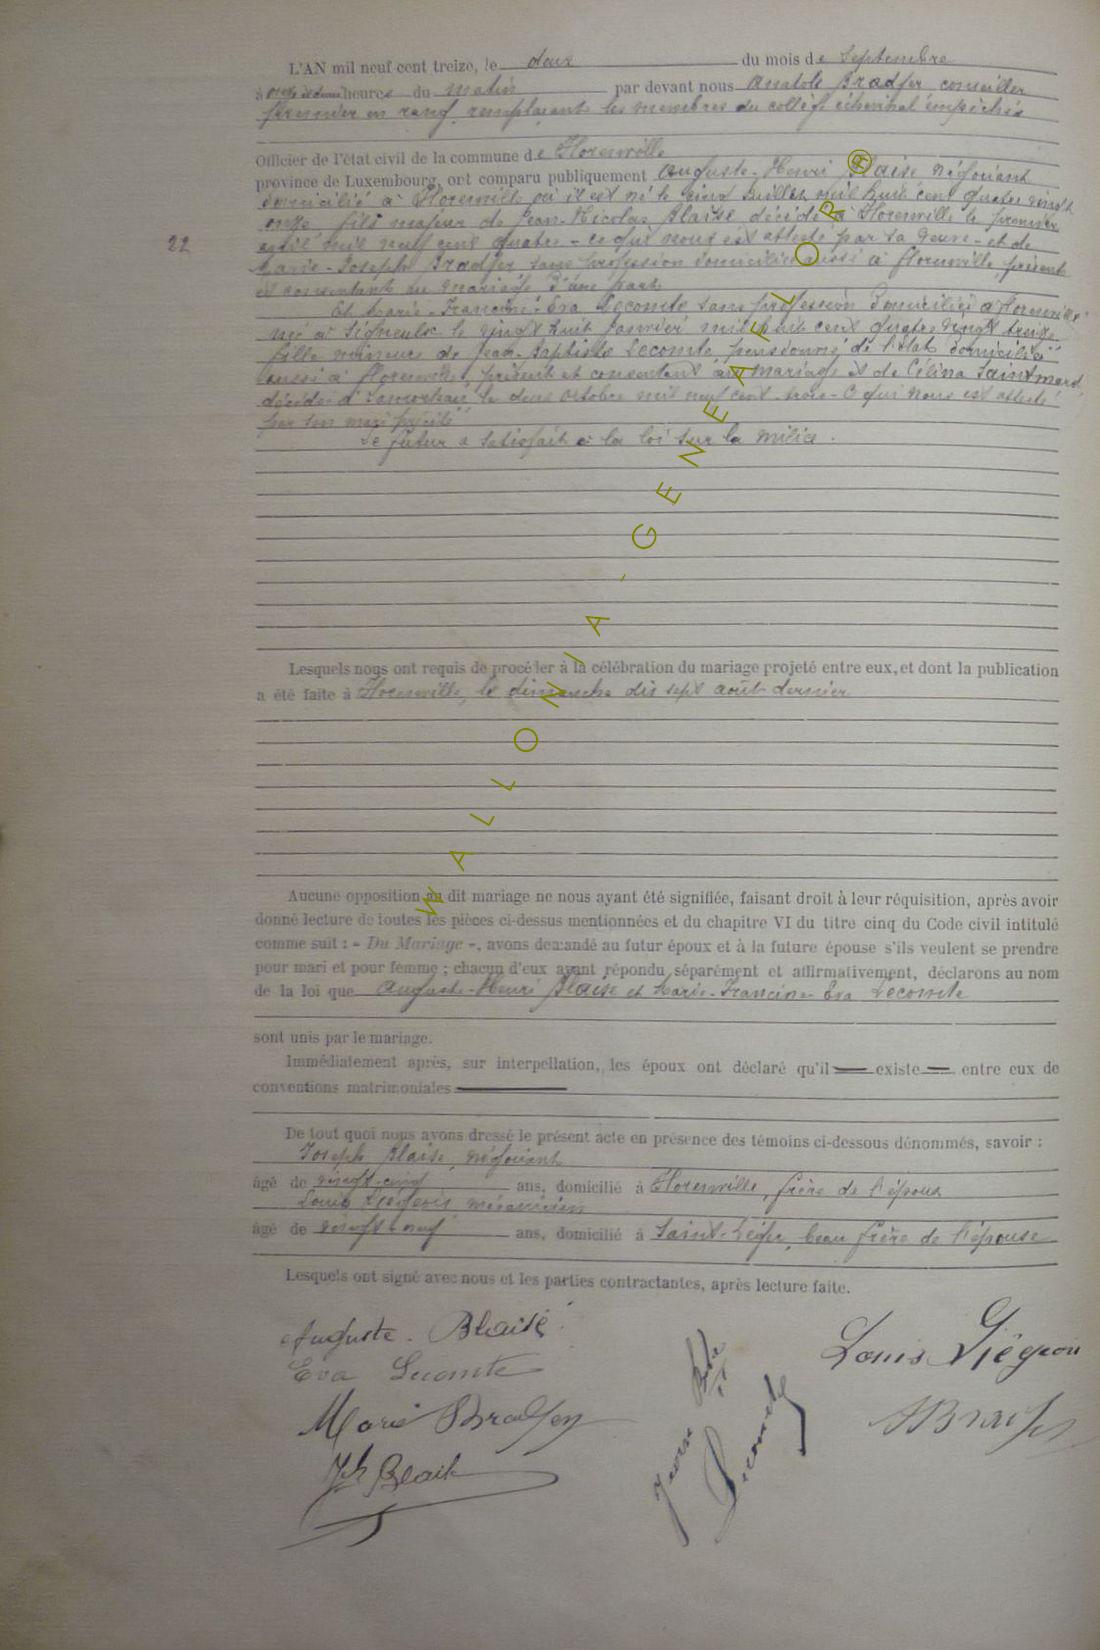 L'AN mil neuf cent treize, le deux du mois de Septembre
à onze et demi heures du matin par devant nous Anatole Bradfer conseiller
premier en rang, remplaçant les membres du collège échevinal empêchés
Officier de l'état civil de la commune de Florenville
province de Luxembourg, ont comparu publiquement Auguste-Henri Blaise négociant
domicilié à Florenville où il est né le cinq juillet mil huit cent quatre vingt
22
onze fils majeur de Jean-Nicolas Blaise décédé à Florenville le premier
avril mil neuf cent quatre - ce qui nous est attesté par sa veuve - et de
Marie-Joseph Bradfer sans profession domiciliée aussi à Florenville présente
et consentante au mariage d'une part
Et Marie-Francine-Eva Lecomte sans profession domiciliée à Florenville
née à Signeulx le vingt huit janvier mil huit cent quatre vingt treize
fille mineure de Jean-Baptiste Lecomte, pensionné de l'état domicilié
aussi à Florenville, présent et consentant au mariage et de Célina Saintmard
décédée à le deux octobre mil neuf cent trois - ce qui nous est attesté
par son mari précité
Le futur a satisfait à la loi sur la milice.
Lesquels nous ont requis de procéder à la célébration du mariage projeté entre eux, et dont la publication
a été faite à Florenville, le dimanche dix sept août dernier
Aucune opposition au dit mariage ne nous ayant été signifiée, faisant droit à leur réquisition, après avoir
donné lecture de toutes les pièces ci-dessus mentionnées et du chapitre VI du titre cinq du Code civil intitulé
comme suit : « Du Mariage », avons demandé au futur époux et à la future épouse s'ils veulent se prendre
pour mari et pour femme ; chacun d'eux ayant répondu séparément et affirmativement, déclarons au nom
de la loi que Auguste-Henri Blaise et Marie-Francine-Eva Lecomte
sont unis par le mariage.
Immédiatement après, sur interpellation, les époux ont déclaré qu'il existe entre eux de
conventions matrimoniales
De tout quoi nous avons dressé le présent acte en présence des témoins ci-dessous dénommés, savoir :
Joseph Blaise, négociant
âgé de vingt-cinq ans, domicilié à Florenville, frère de l'époux
Louis Liégeois mécanicien
âgé de vingt-neuf ans, domicilié à Saint-Léger, beau frère de l'épouse
Lesquels ont signé avec nous et les parties contractantes, après lecture faite.
Auguste. Blaise
Eva Lecomte
Marie Bradfer
Jh Blaise
Lecomte
Louis Liégeois
ABradfer
WALLONIA-GENEALOR®